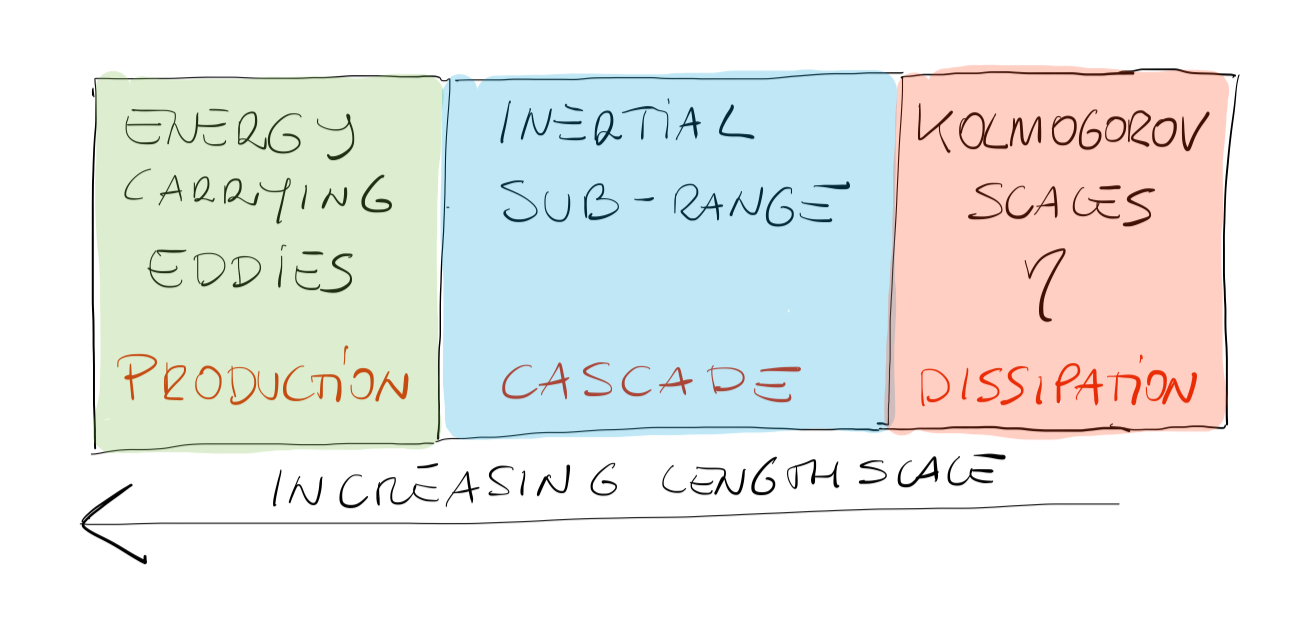 ENERGY
CARRYING
EDDIES
PRODUCTION
INERTIAL
SUB-RANGE
CASCADE
KOLMOGOROV
SCALES
η
DISSIPATION
INCREASING LENGTHSCALE